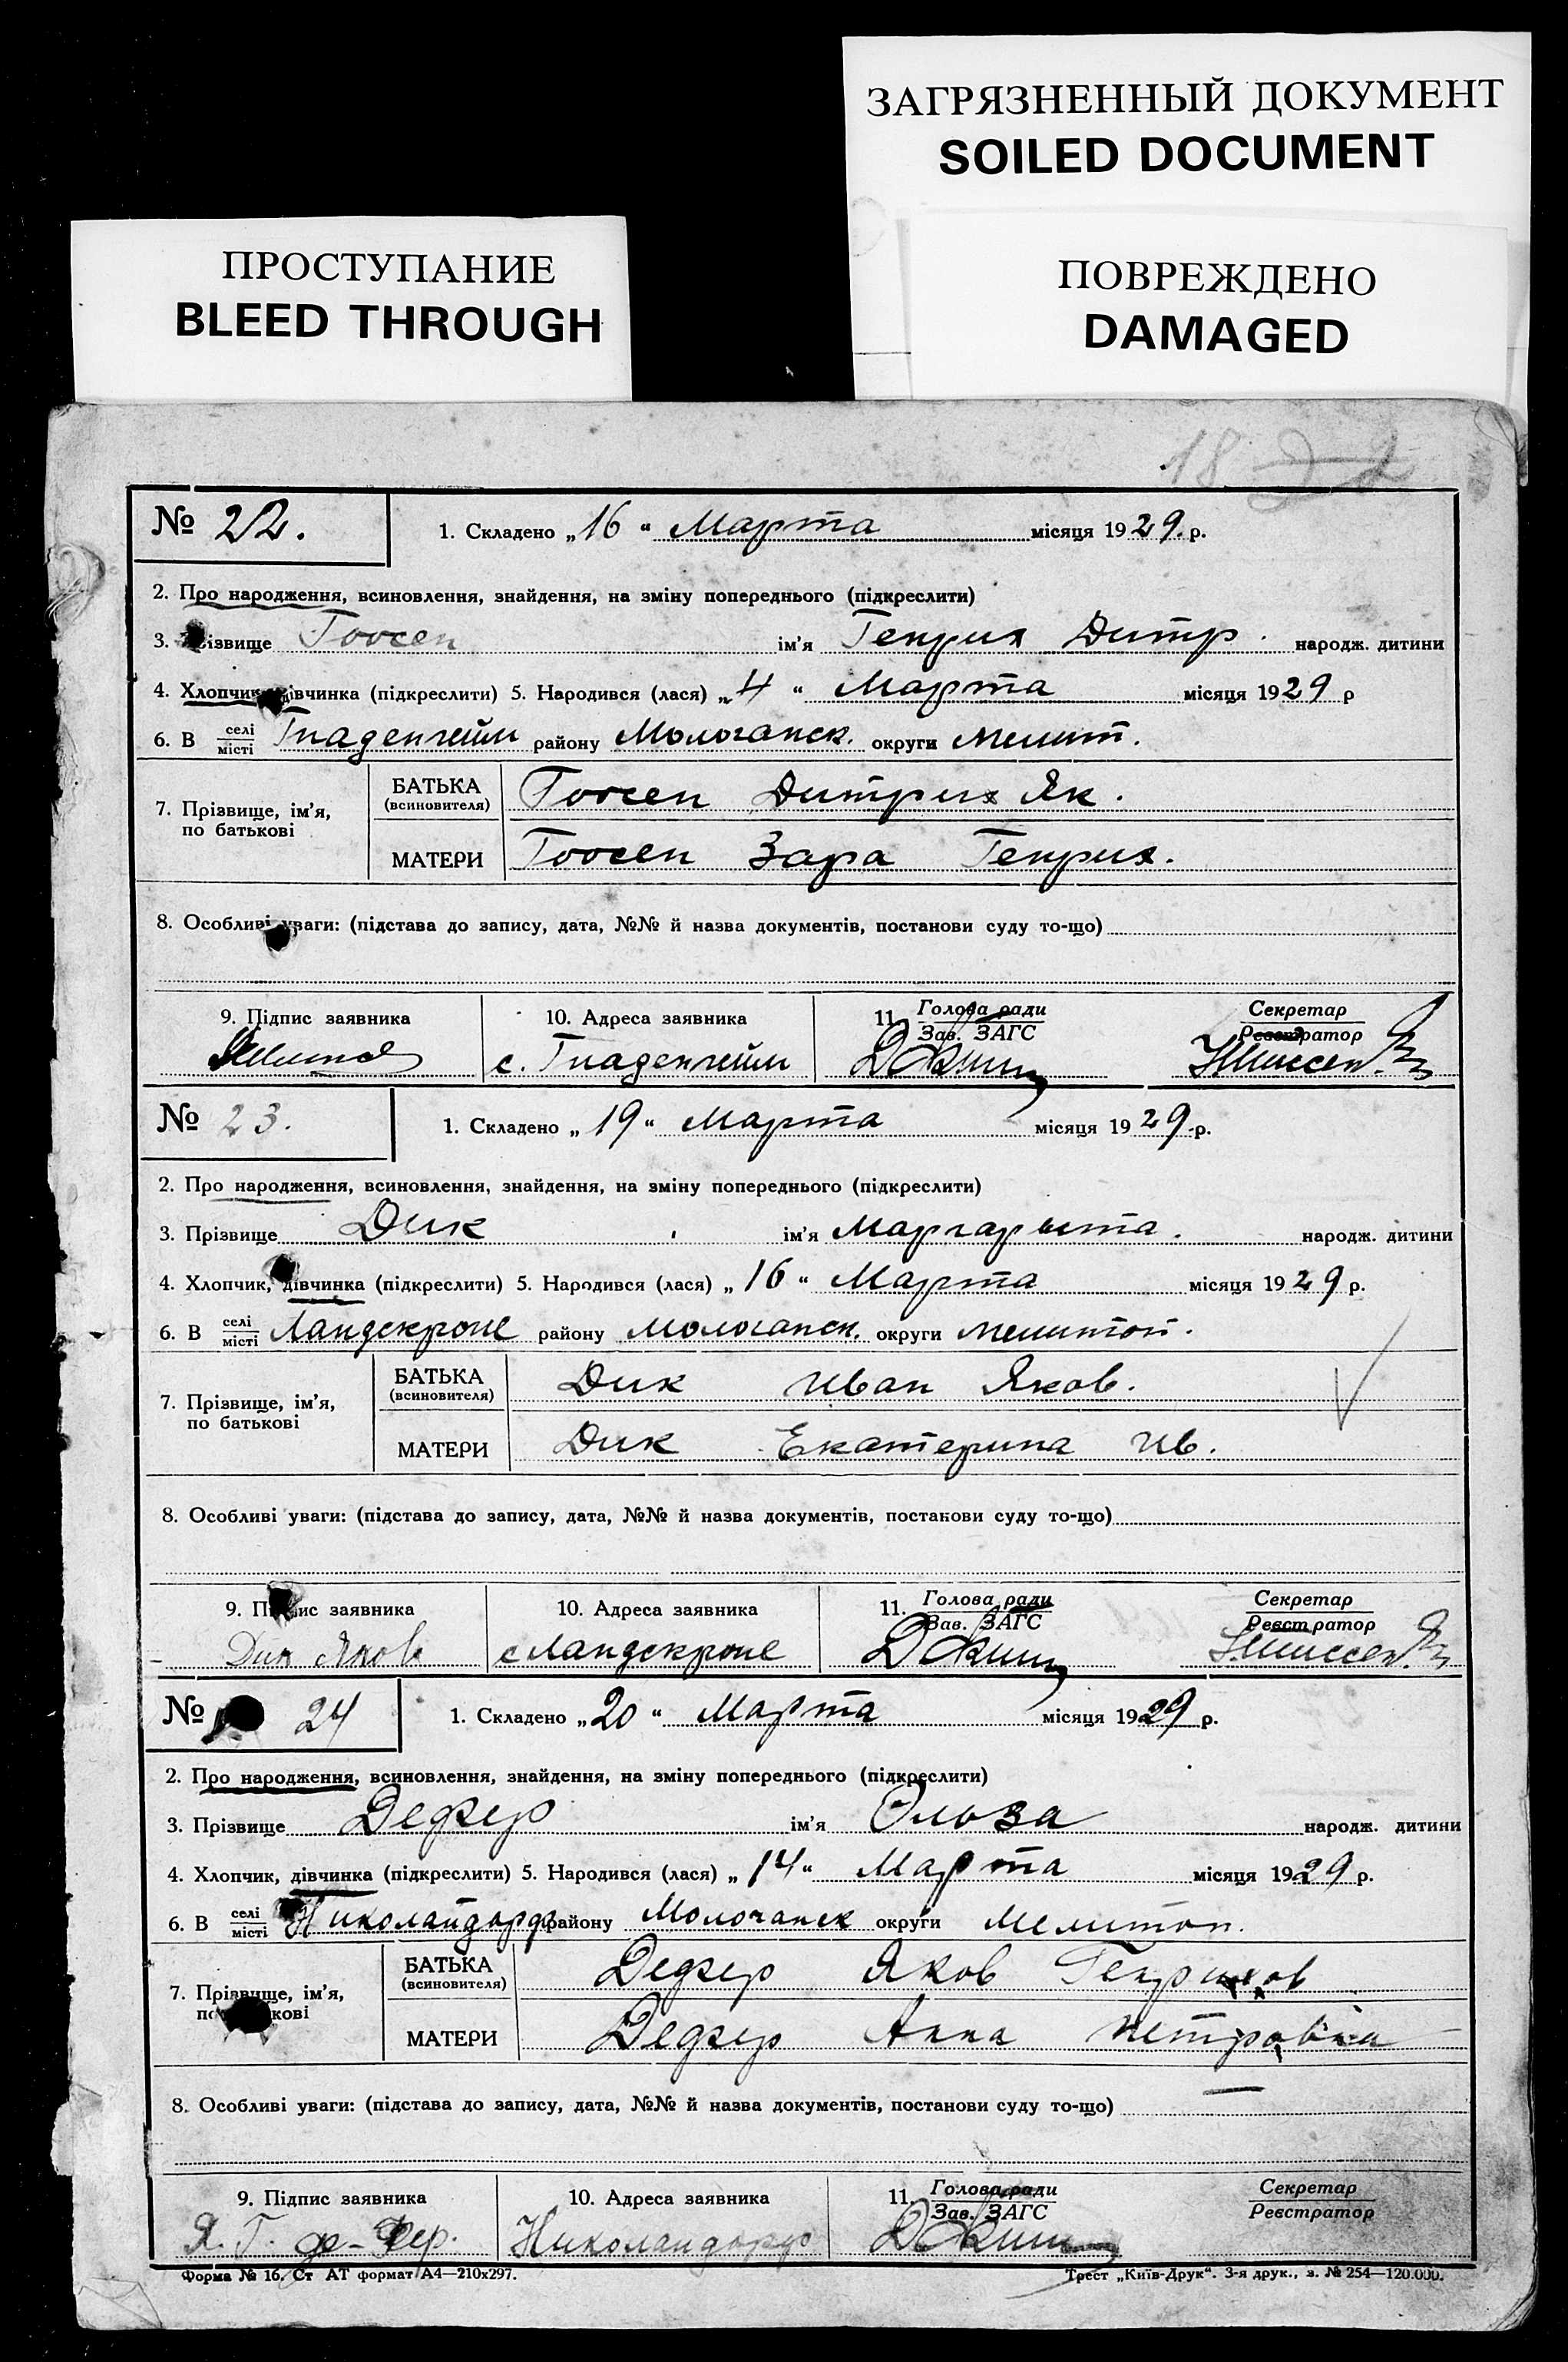 ЗАГРЯЗНЕННЫЙ ДОКУМЕНТ
SOILED DOCUMENT
ПРОСТУПАНИЕ
BLEED THROUGH
ПОВРЕЖДЕНО
DAMAGED
18
№ 22. 1. Складено „16“ Марта місяця 1929. р.
2. Про народження, всиновлення, знайдення, на зміну попереднього (підкреслити)
3. Прізвище Тоосен ім'я Генрих Дитр. народж. дитини
4. Хлопчик, дівчинка (підкреслити) 5. Народився (лася) „4“ Марта місяця 1929 р
6. В селі/місті Гнаденгейм району Молочанск. округи Мелит.
7. Прізвище, ім'я, по батькові БАТЬКА (всиновителя) Тоосен Дитрих Як.
МАТЕРИ Тоосен Зара Генрих.
8. Особливі уваги: (підстава до запису, дата, №№ й назва документів, постанови суду то-що)
9. Підпис заявника 10. Адреса заявника 11. Голова ради/Зав. ЗАГС Секретар/Реєстратор
с. Гнаденгейм
№ 23. 1. Складено „19“ Марта місяця 1929 р.
2. Про народження, всиновлення, знайдення, на зміну попереднього (підкреслити)
3. Прізвище Дик ім'я Маргарыта. народж. дитини
4. Хлопчик, дівчинка (підкреслити) 5. Народився (лася) „16“ Марта місяця 1929 р.
6. В селі/місті Ландскроне району Молочанск. округи Мелитоп.
7. Прізвище, ім'я, по батькові БАТЬКА (всиновителя) Дик Иван Яков.
МАТЕРИ Дик Екатерина Ив.
8. Особливі уваги: (підстава до запису, дата, №№ й назва документів, постанови суду то-що)
9. Підпис заявника 10. Адреса заявника 11. Голова ради/Зав. ЗАГС Секретар/Реєстратор
Дик Яков с Ландскроне
№ 24 1. Складено „20“ Марта місяця 1929 р.
2. Про народження, всиновлення, знайдення, на зміну попереднього (підкреслити)
3. Прізвище Дефер ім'я Эльза народж. дитини
4. Хлопчик, дівчинка (підкреслити) 5. Народився (лася) „14“ Марта місяця 1929 р.
6. В селі/місті Николайдорф району Молочанск округи Мелитоп.
7. Прізвище, ім'я, по батькові БАТЬКА (всиновителя) Дефер Яков Генрихов
МАТЕРИ Дефер Анна Петровна
8. Особливі уваги: (підстава до запису, дата, №№ й назва документів, постанови суду то-що)
9. Підпис заявника 10. Адреса заявника 11. Голова ради/Зав. ЗАГС Секретар/Реєстратор
Я. Г. Николайдорф
Форма № 16. Ст АТ формат А4—210х297. Трест „Київ-Друк“. 3-я друк., з. № 254—120.000.